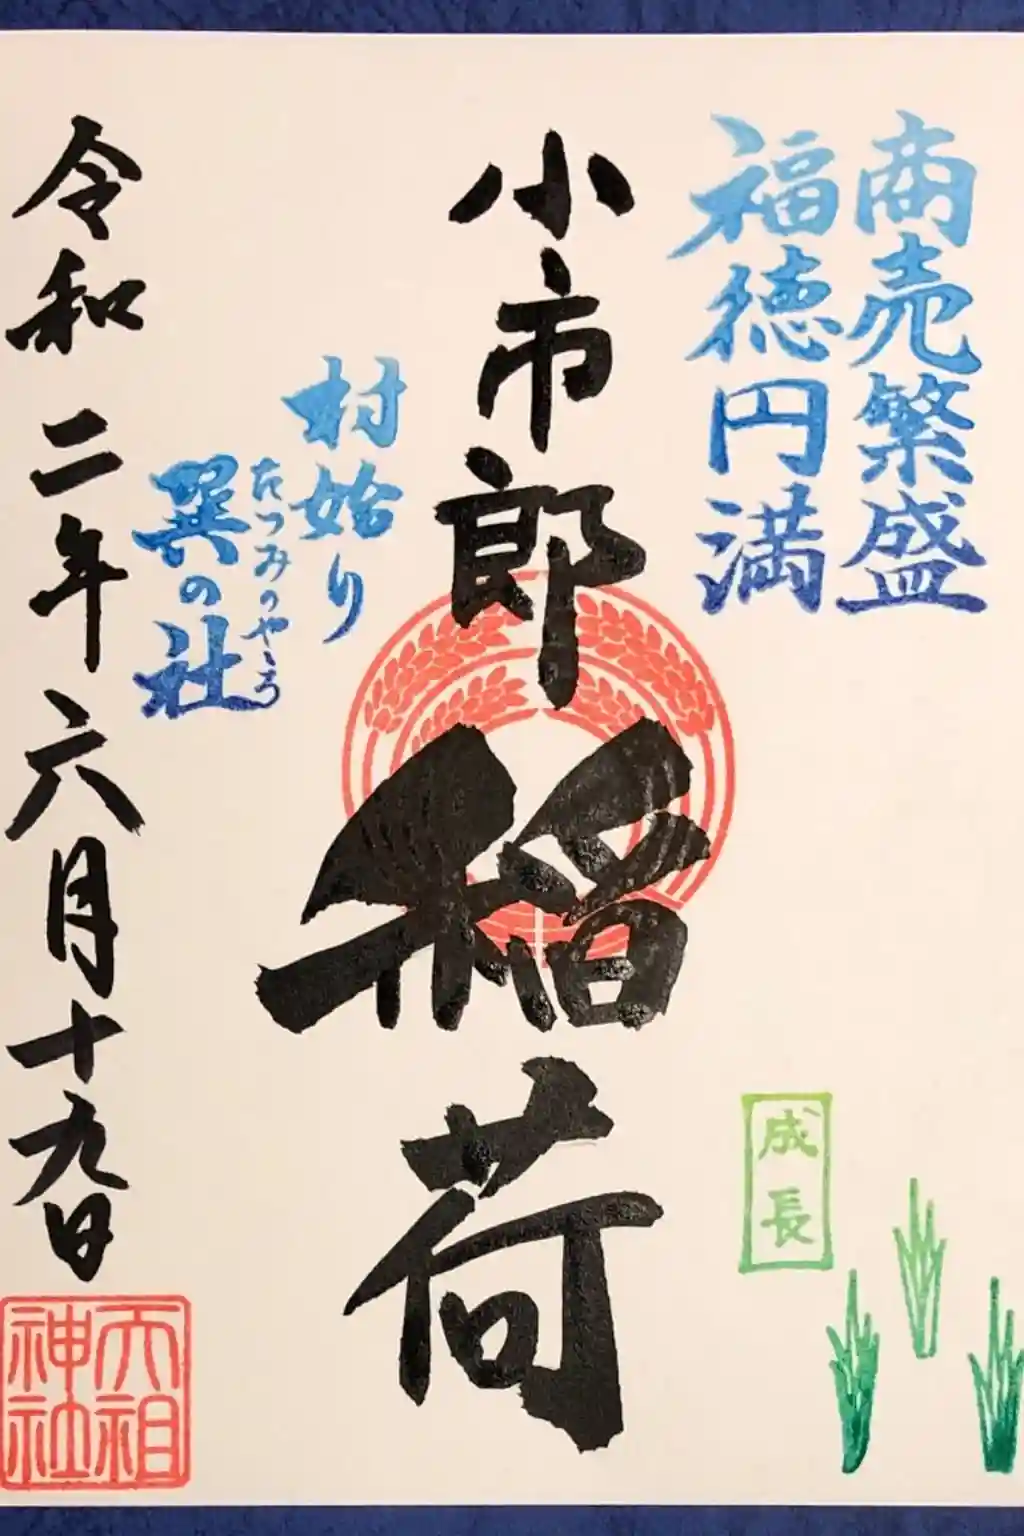 商売繁盛
福徳円満
小市郎稲荷
村始り
たつみのやしろ
巽の社
令和二年六月十九日
成長
天祖
神社